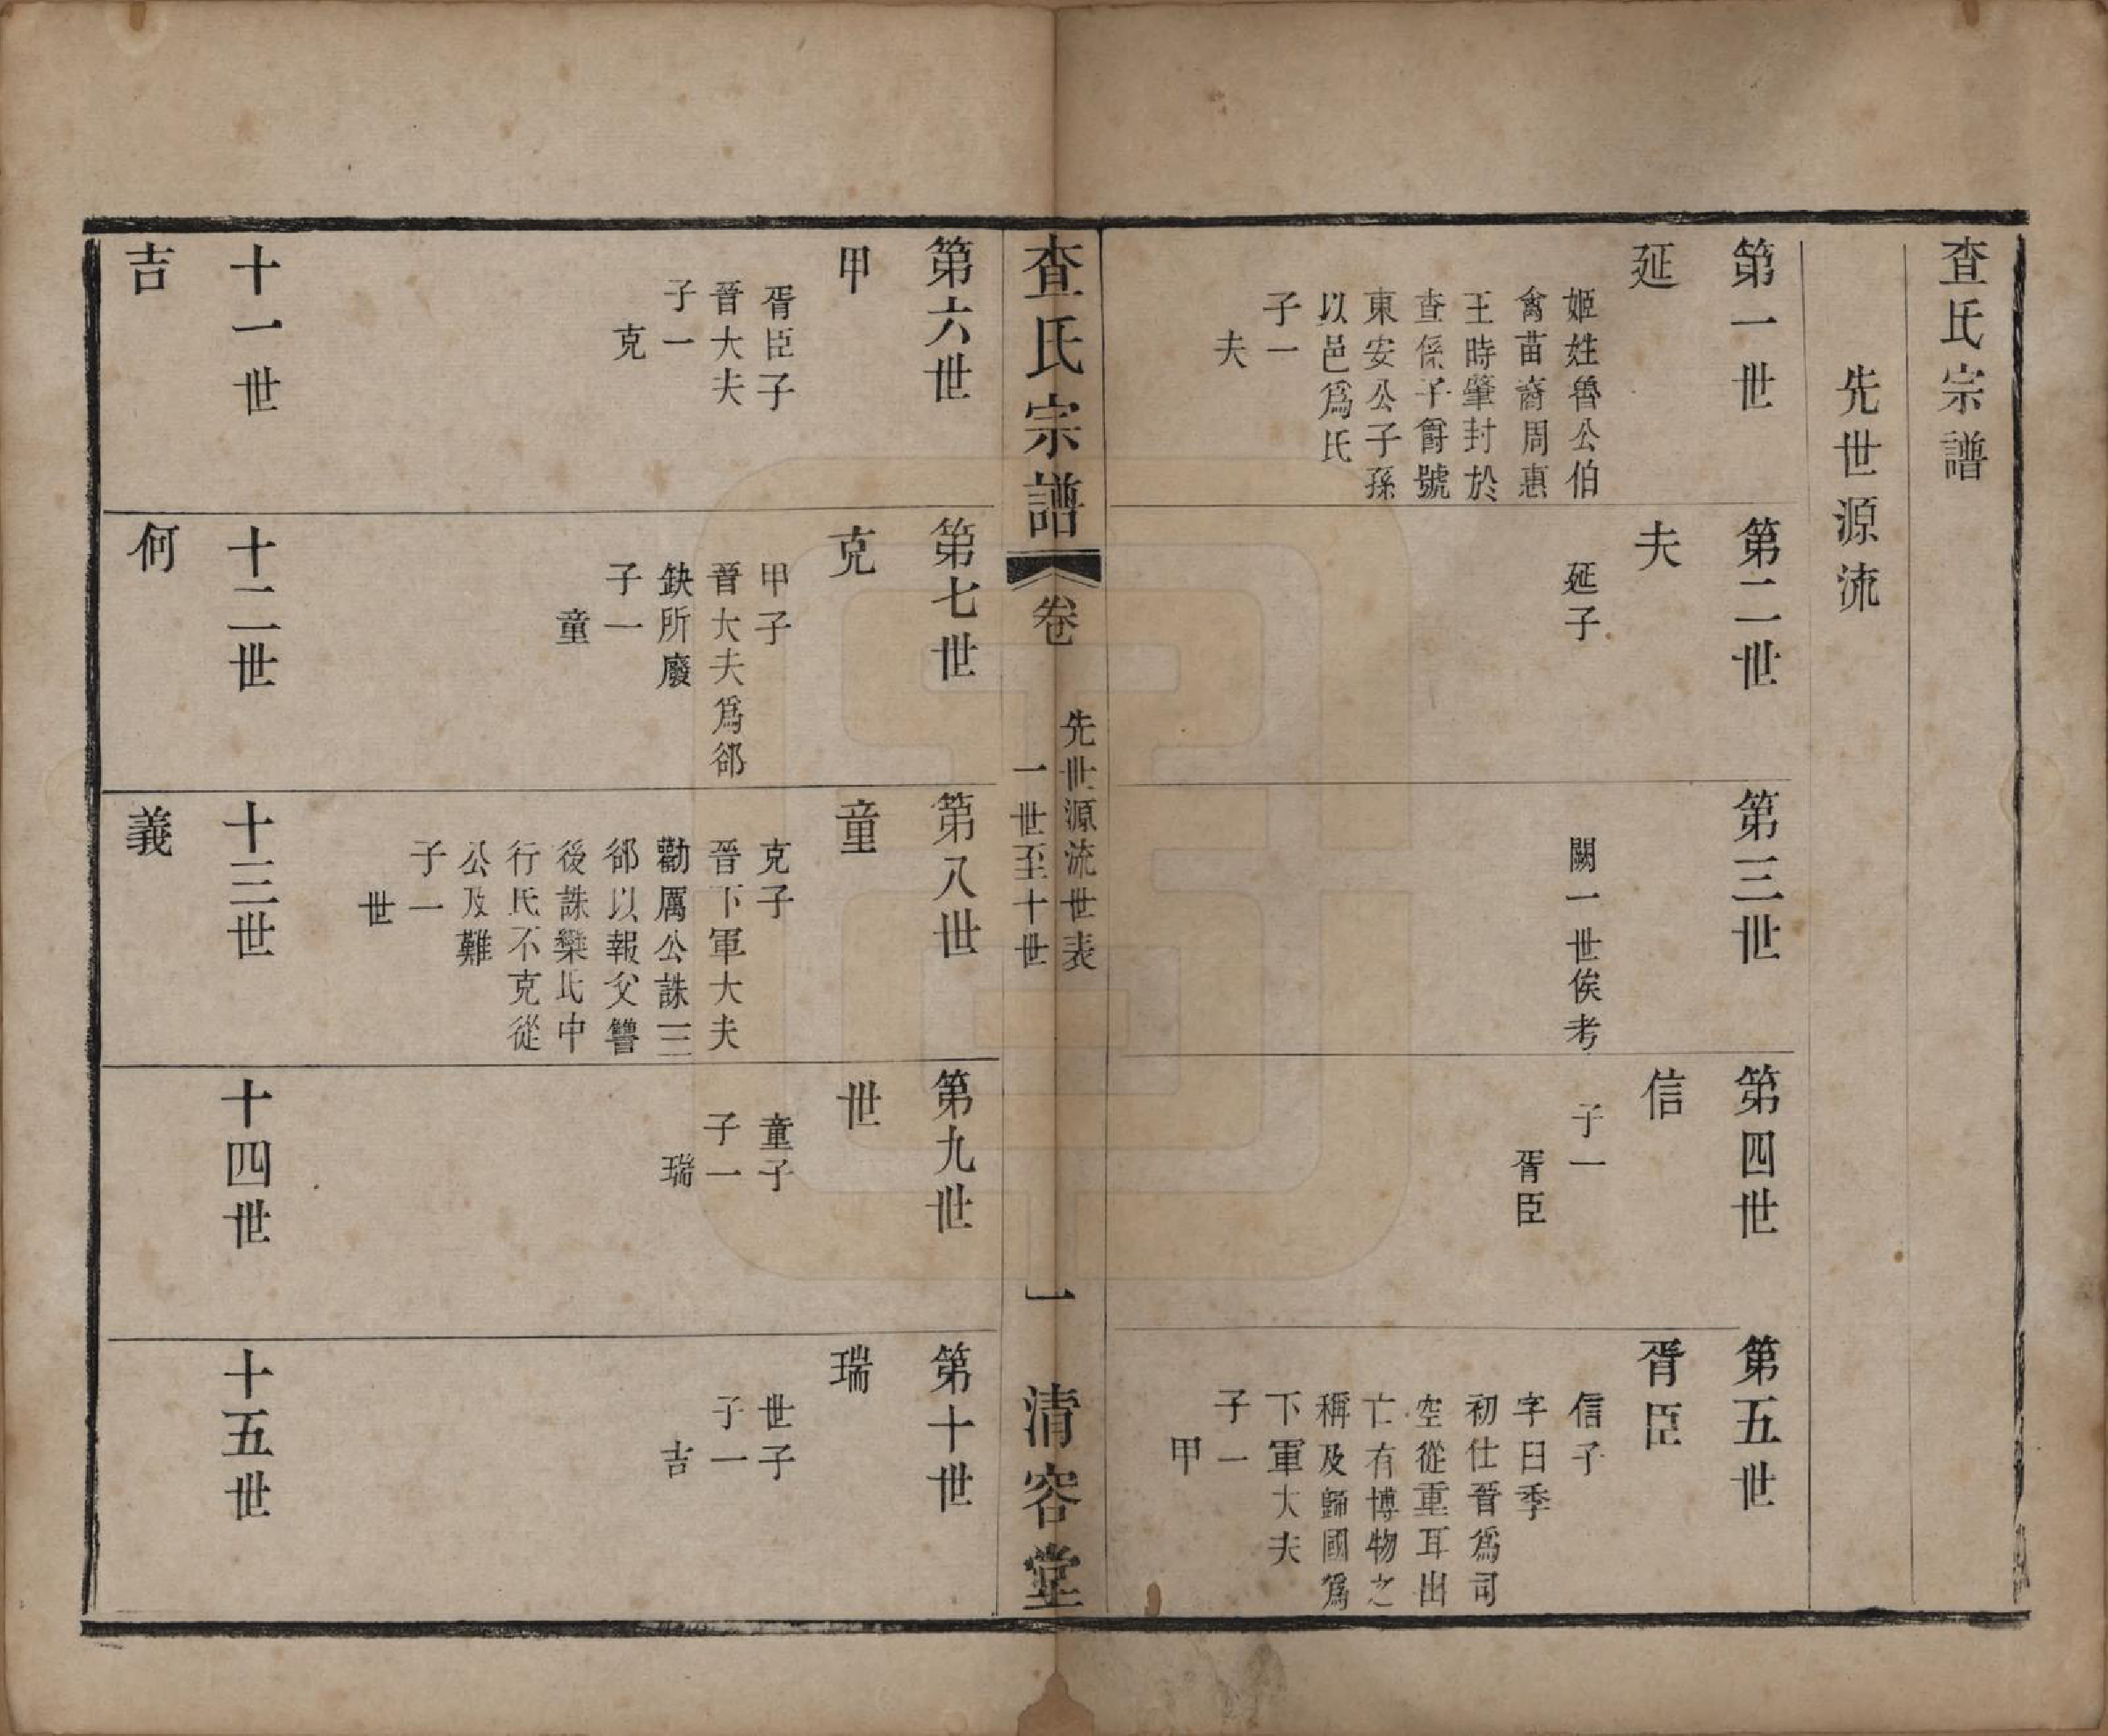 查氏宗譜
先世源流
第一世
延
姬姓魯公伯
禽苗裔周惠
王時肇封於
查係子爵號
東安公子孫
以邑爲氏
子一
夫
第二世
夫
延子
第三世
闕一世俟考
第四世
信
子一
胥臣
第五世
胥臣
信子
字曰季
初仕晉爲司
空從重耳出
亡有博物之
稱及歸國爲
下軍大夫
子一
甲
查氏宗譜
卷
先世源流世表
一世至十世
一
清容堂
第六世
甲
胥臣子
晉大夫
子一
克
第七世
克
甲子
晉大夫爲郤
缺所廢
子一
童
第八世
童
克子
晉下軍大夫
勸厲公誅三
郤以報父讐
後誅欒氏中
行氏不克從
公及難
子一
世
第九世
世
童子
子一
瑞
第十世
瑞
世子
子一
吉
十一世
吉
十二世
何
十三世
義
十四世
十五世